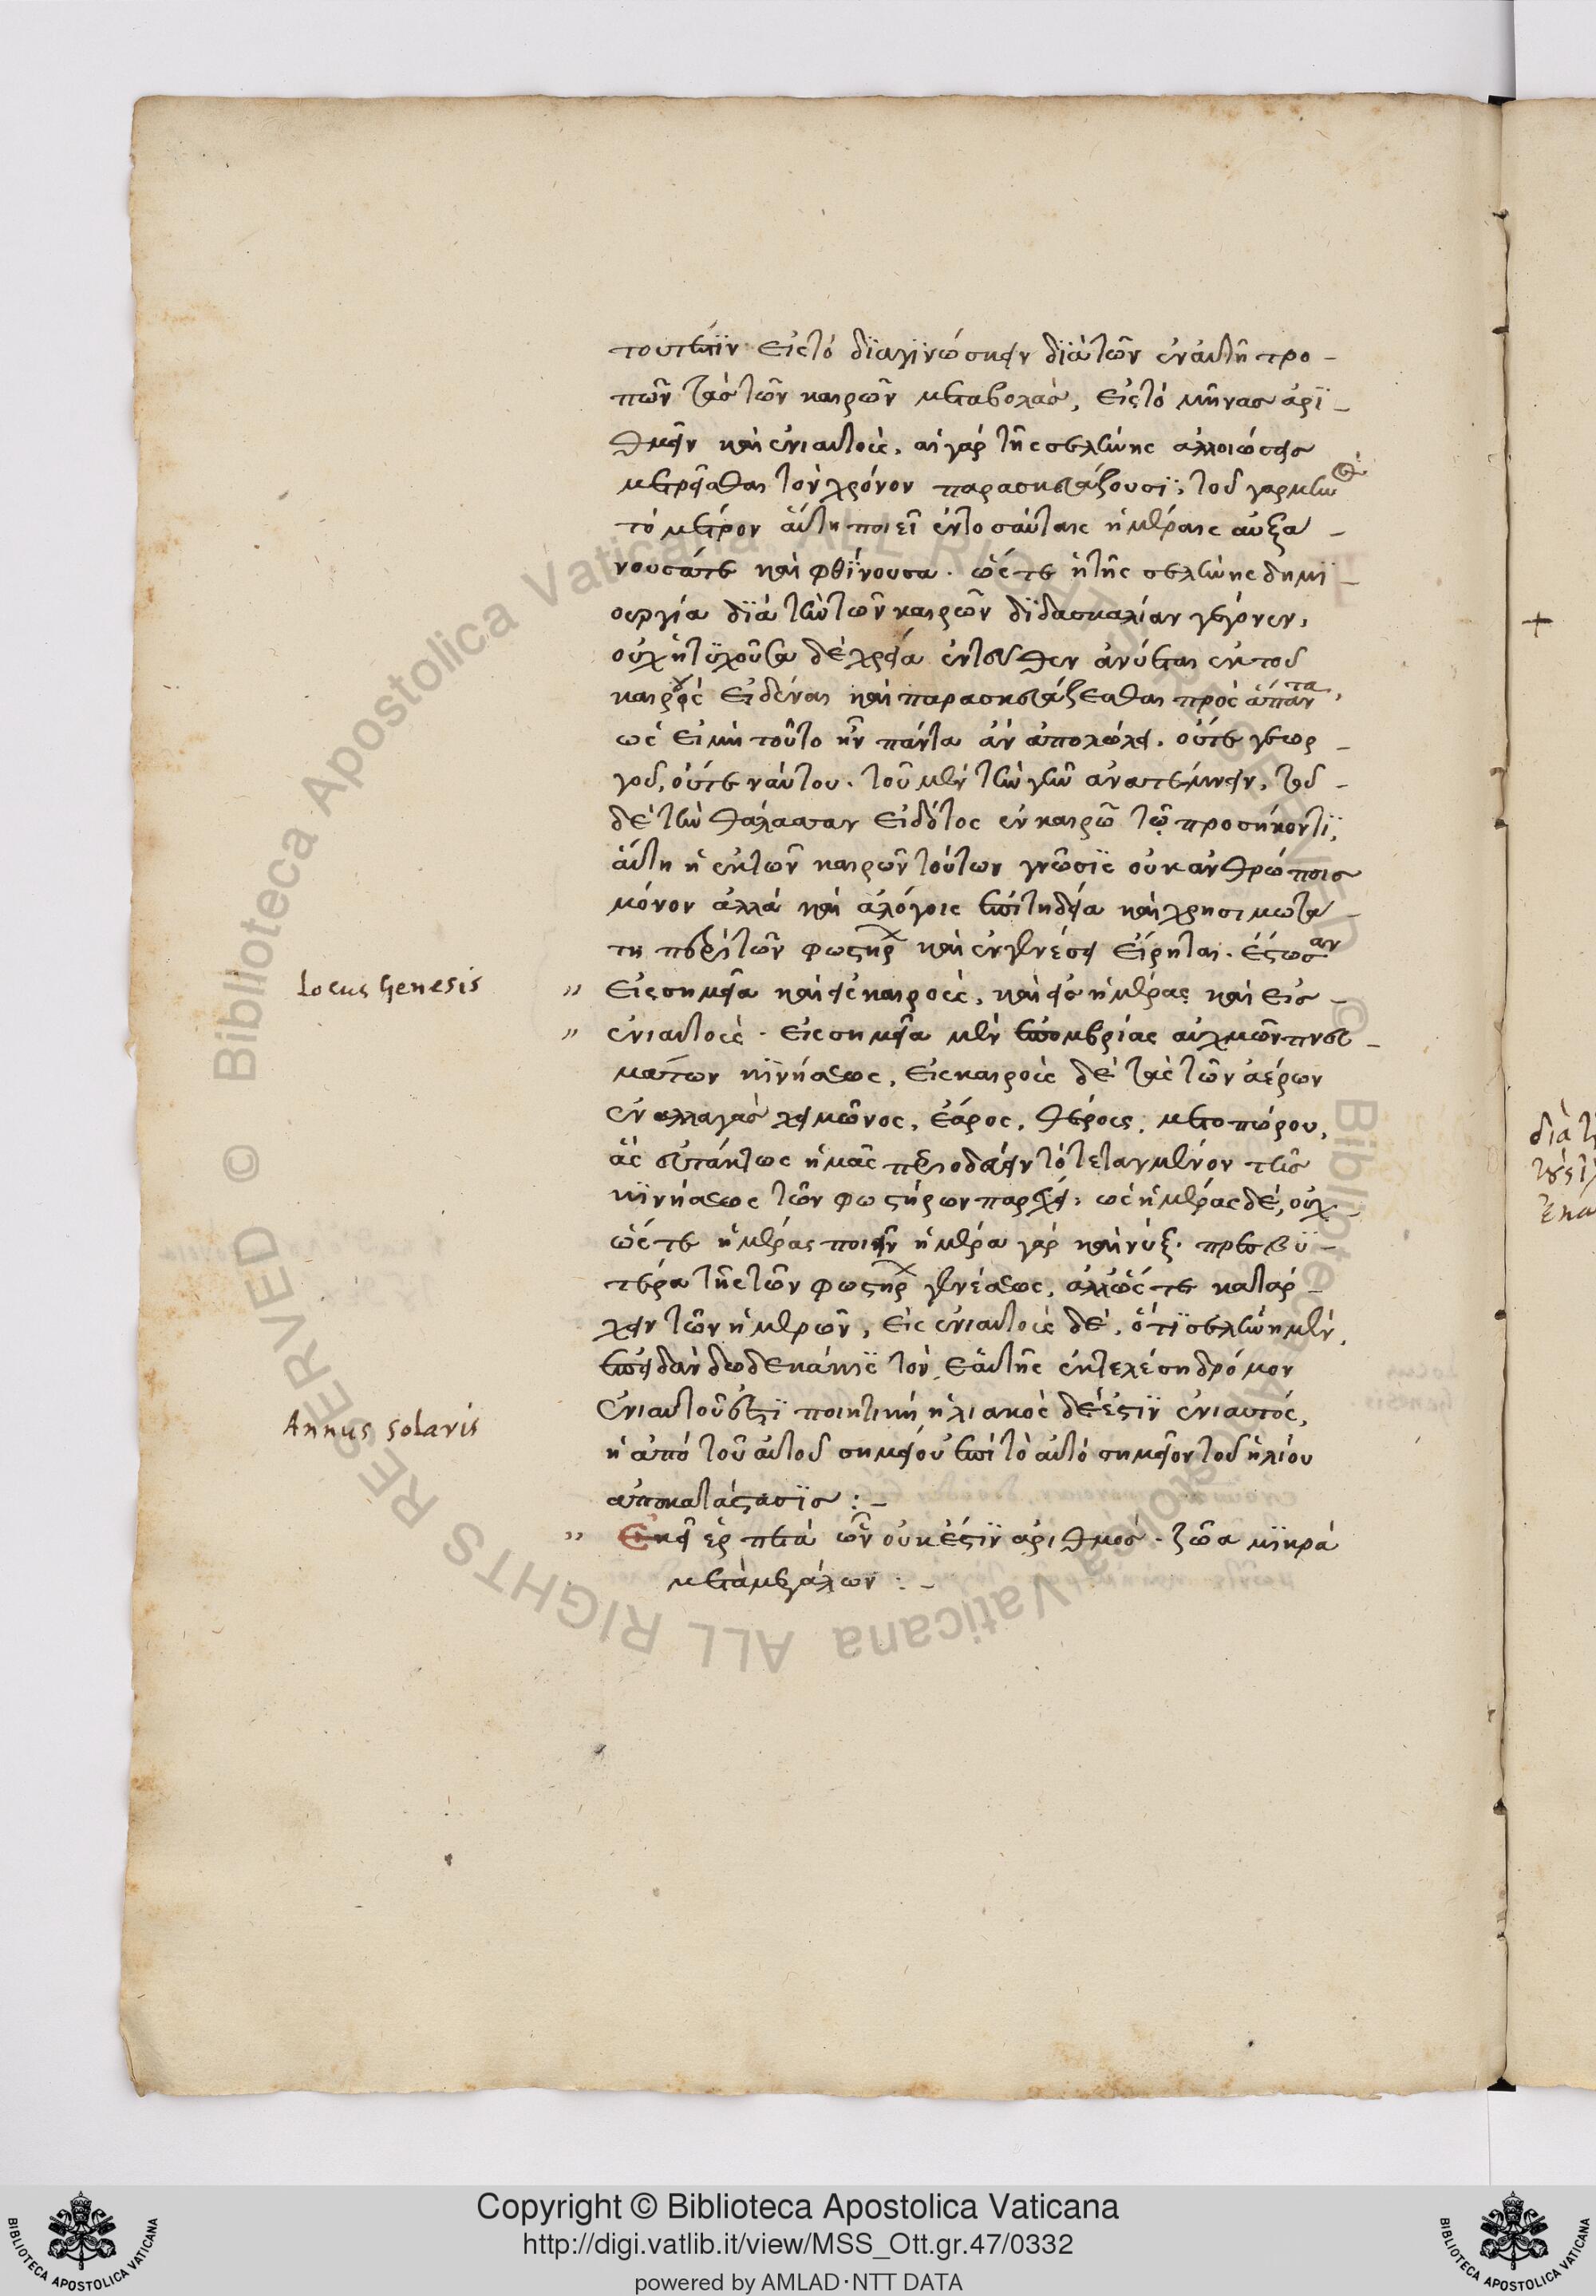 τουτέστιν εἰς τὸ διαγινώσκειν διὰ τῶν ἐν αὐτῇ τρο-
πῶν τὰς τῶν καιρῶν μεταβολάς, εἰς τὸ μῆνας ἀρι-
θμεῖν καὶ ἐνιαυτούς, αἱ γὰρ τῆς σελήνης ἀλλοιώσεις
μετρεῖσθαι τὸν χρόνον παρασκευάζουσι, τοῦ γὰρ μηνὸς
τὸ μέτρον αὕτη ποιεῖ ἐν τοσαύταις ἡμέραις αὐξά-
νουσά τε καὶ φθίνουσα. ὥστε ἡ τῆς σελήνης δημι-
ουργία διὰ τὴν τῶν καιρῶν διδασκαλίαν γέγονεν,
οὐχ ἡ τυχοῦσα δὲ χρεία ἐντεῦθεν ἀνύεται ἐκ τοῦ
καιροὺς εἰδέναι καὶ παρασκευάζεσθαι πρὸς ἅπαντα,
ὡς εἰ μὴ τοῦτο ἦν πάντα ἂν ἀπολώλει. οὔτε γεωρ-
γοῦ, οὔτε ναύτου. τοῦ μὲν τὴν γῆν ἀνατέμνειν, τοῦ
δὲ τὴν θάλασσαν εἰδότος ἐν καιρῷ τῷ προσήκοντι,
αὕτη ἡ ἐκ τῶν καιρῶν τούτων γνῶσις οὐκ ἀνθρώποις
μόνον ἀλλὰ καὶ ἀλόγοις ἐπιτηδεία καὶ χρησιμωτά-
τη περὶ τῶν φωστήρ καὶ ἐν γενέσει εἴρηται. ἔστωσαν
Locus Genesis
" εἰς σημεῖα καὶ εἰς καιρούς, καὶ εἰς ἡμέρας καὶ εἰς
" ἐνιαυτούς. εἰς σημεῖα μὲν ἐπομβρίας αὐχμῶν πνευ-
μάτων κινήσεως, εἰς καιροὺς δὲ τὰς τῶν ἀέρων
ἐναλλαγὰς χειμῶνος, ἔαρος, θέρους, μετοπώρου,
ἃς εὐτάκτως ἡμᾶς περιοδεύειν τὸ τεταγμένον τῆς
κινήσεως τῶν φωστήρων παρέχει, ὡς ἡμέρας δέ, οὐχ
ὥστε ἡμέρας ποιεῖν ἡμέρα γὰρ καὶ νὺξ. πρεσβυ-
τέρα τῆς τῶν φωστήρ γενέσεως, ἀλλ' ὥστε κατάρ-
χειν τῶν ἡμερῶν, εἰς ἐνιαυτοὺς δέ, ὅτι σελήνη μὲν,
ἐπειδὰν δωδεκάκις τὸν ἑαυτῆς ἐκτελέσῃ δρόμον
ἐνιαυτοῦ ἐστι ποιητική ἡλιακὸς δέ ἐστιν ἐνιαυτός,
Annus solaris
ἡ ἀπὸ τοῦ αὐτοῦ σημείου ἐπὶ τὸ αὐτὸ σημεῖον τοῦ ἡλίου
ἀποκατάστασις :-
" Ἐκεῖ ἑρπετὰ ὧν οὐκ ἔστιν ἀριθμός. ζῶα μικρὰ
μετὰ μεγάλων :-
+
Copyright © Biblioteca Apostolica Vaticana
http://digi.vatlib.it/view/MSS_Ott.gr.47/0332
powered by AMLAD·NTT DATA
BIBLIOTECA APOSTOLICA VATICANA
BIBLIOTECA APOSTOLICA VATICANA
© Biblioteca Apostolica Vaticana ALL RIGHTS RESERVED
© Biblioteca Apostolica Vaticana ALL RIGHTS RESERVED